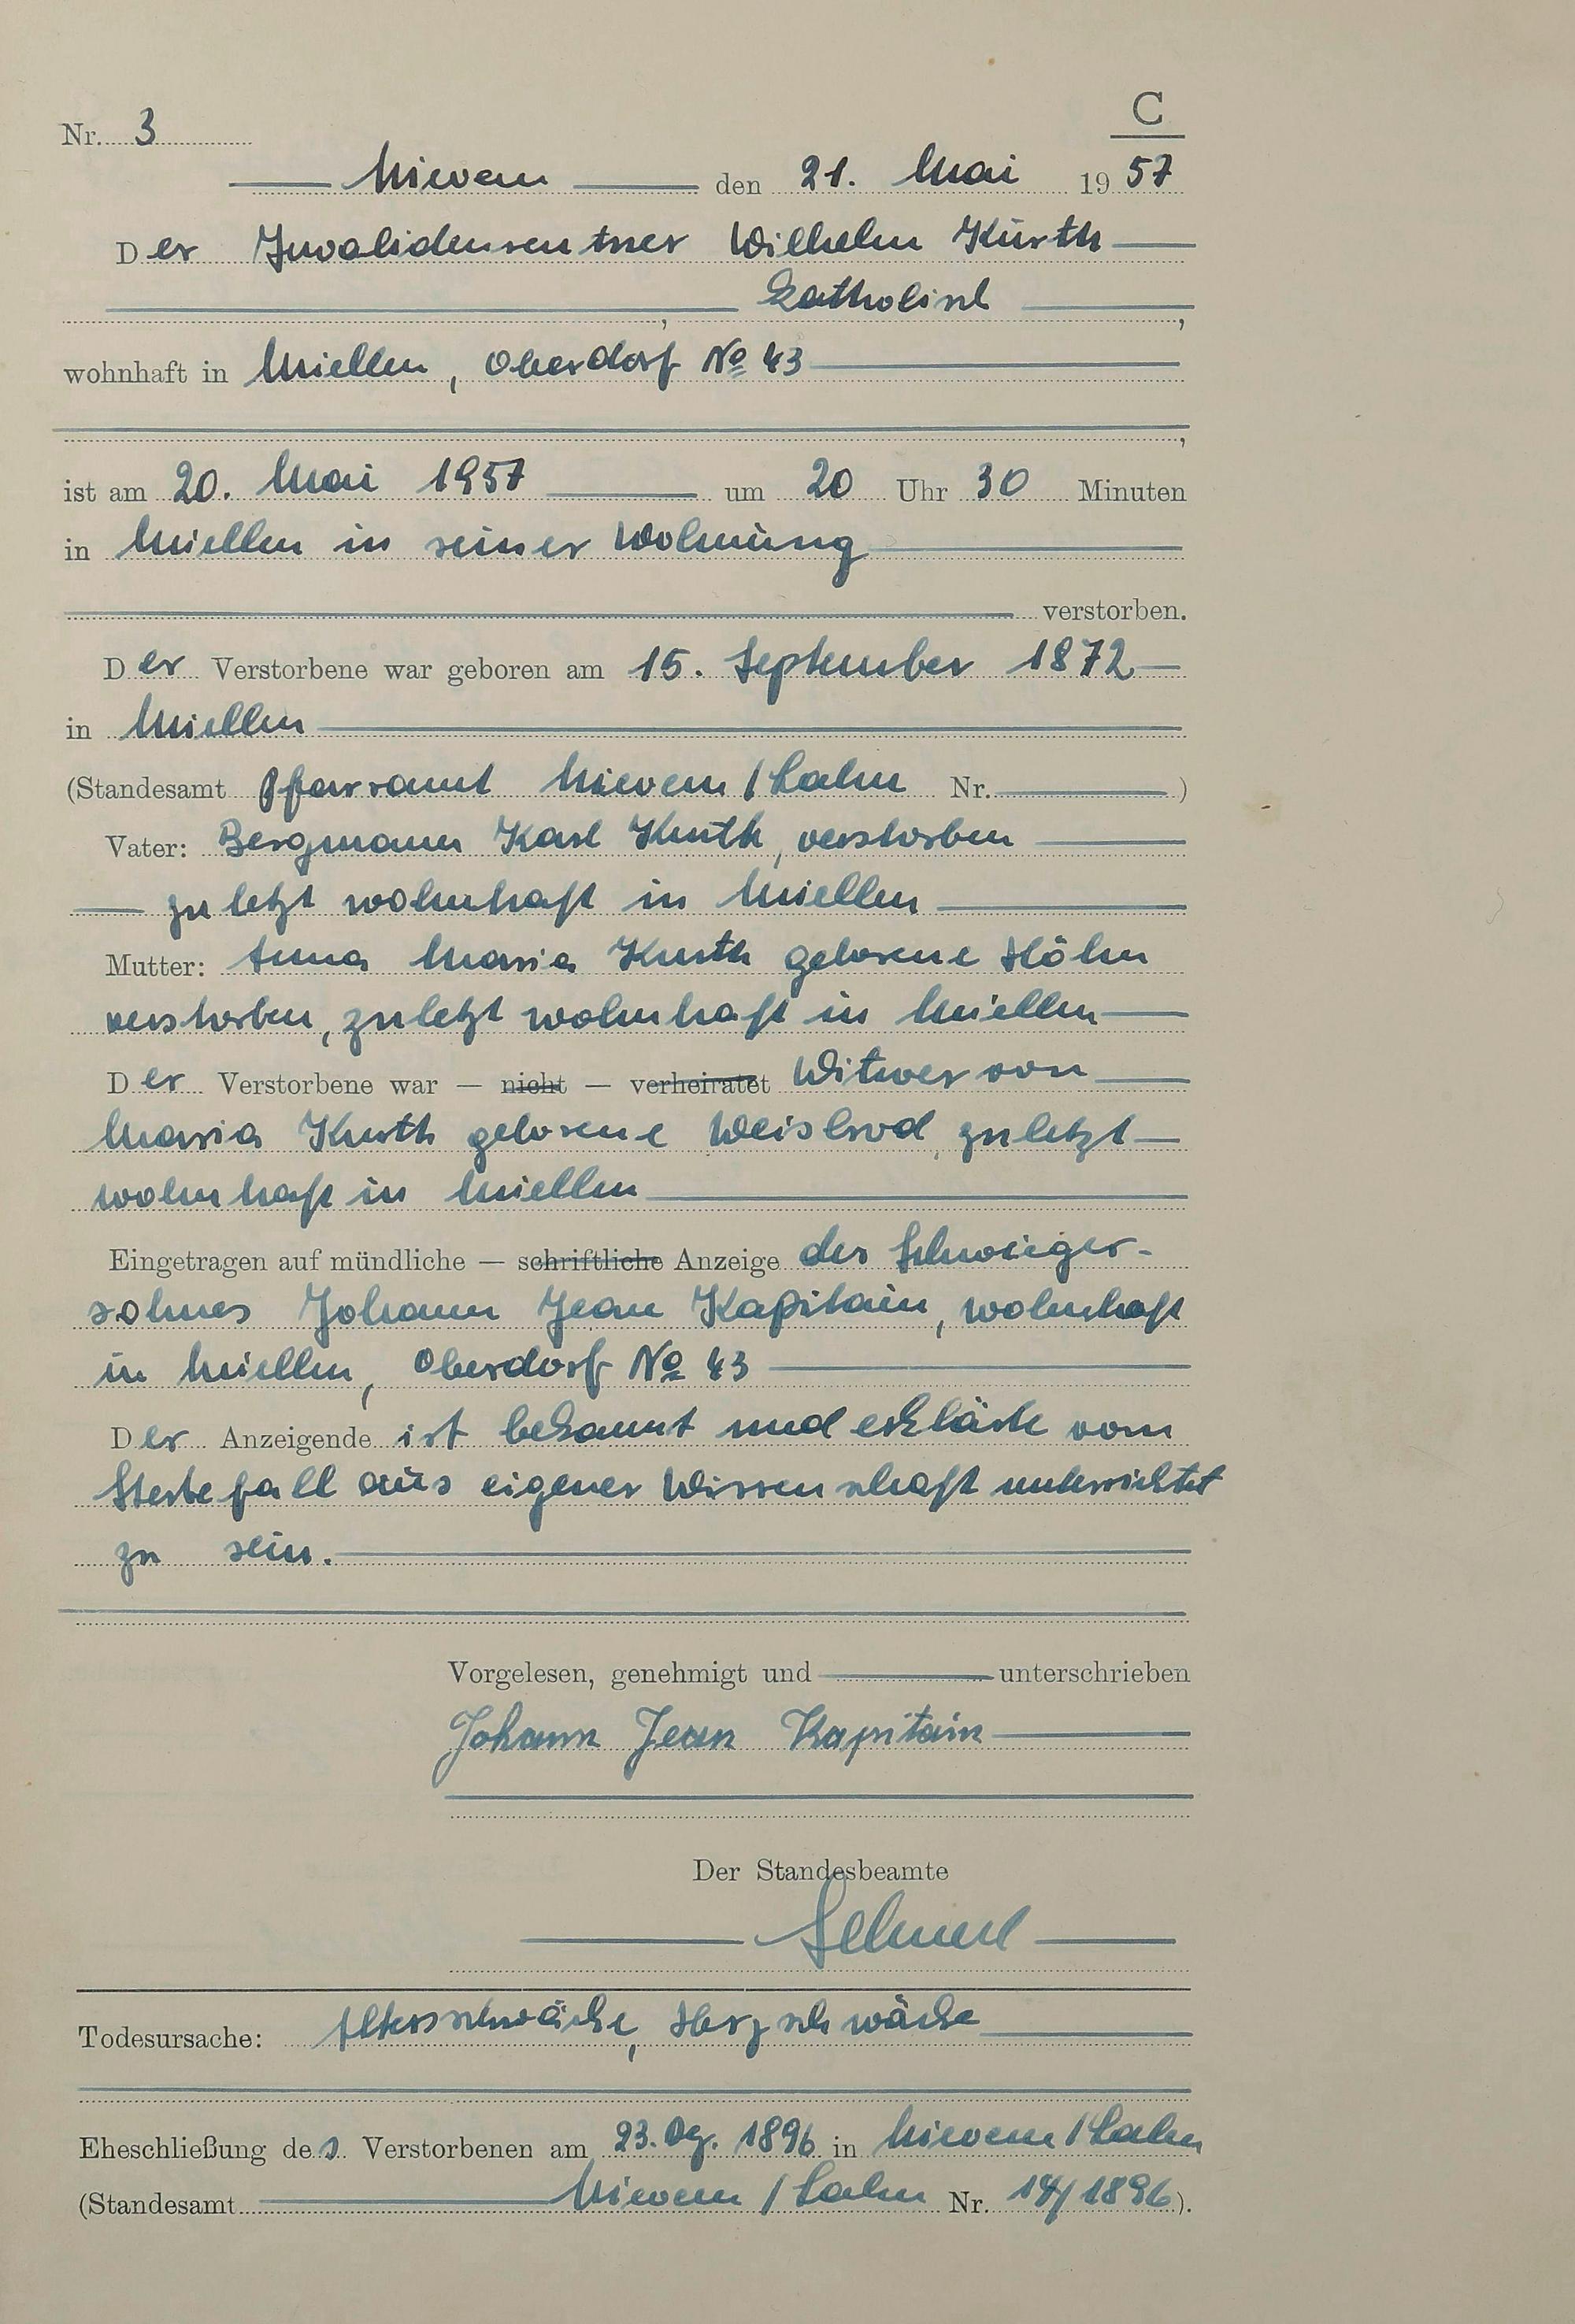 C
Nr. 3
Nievern den 21. Mai 1957
Der Invalidenrentner Wilhelm Kurth
katholisch,
wohnhaft in Miellen, Oberdorf No 43
,
ist am 20. Mai 1957 um 20 Uhr 30 Minuten
in Miellen in seiner Wohnung
verstorben.
Der Verstorbene war geboren am 15. September 1872
in Miellen
(Standesamt Pfarramt Nievern / Lahn Nr. )
Vater: Bergmann Karl Kurth, verstorben
zuletzt wohnhaft in Miellen
Mutter: Anna Maria Kurth geborene Höhn
verstorben, zuletzt wohnhaft in Miellen
Der Verstorbene war — nicht — verheiratet Witwer von
Maria Kurth geborene Weisbrod, zuletzt
wohnhaft in Miellen
Eingetragen auf mündliche — schriftliche Anzeige des Schwieger-
sohnes Johann Jean Kapitain, wohnhaft
in Miellen, Oberdorf No 43
Der Anzeigende ist bekannt und erklärte vom
Sterbefall aus eigener Wissenschaft unterrichtet
zu sein.
Vorgelesen, genehmigt und unterschrieben
Johann Jean Kapitain
Der Standesbeamte
Todesursache: Altersschwäche, Herzschwäche
Eheschließung des Verstorbenen am 23. Dez. 1896 in Nievern / Lahn
(Standesamt Nievern / Lahn Nr. 14/1896).